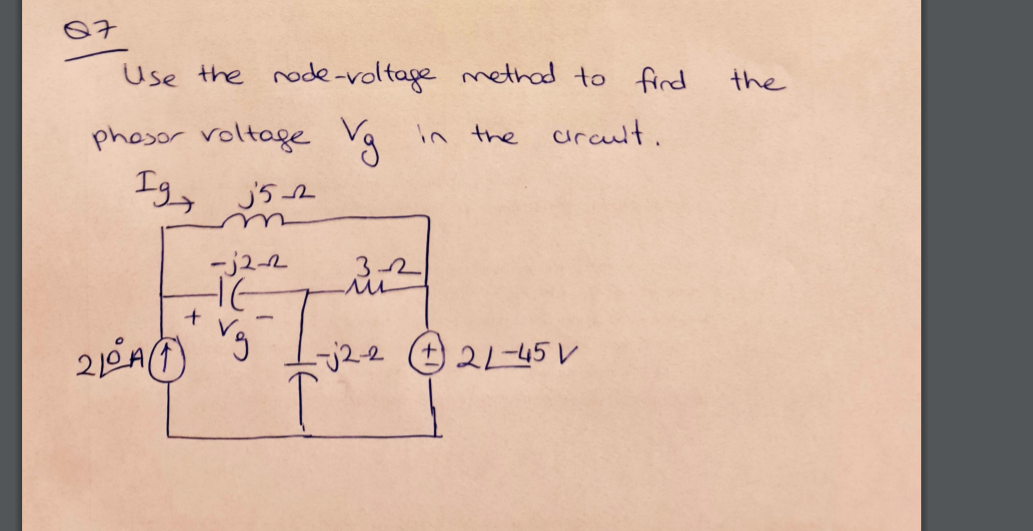 Q7
Use the node-voltage method to find the
phasor voltage Vg in the circuit.
Ig→ j5Ω
-j2Ω 3Ω
+ Vg -
2∠0° A -j2Ω + - 2∠-45 V